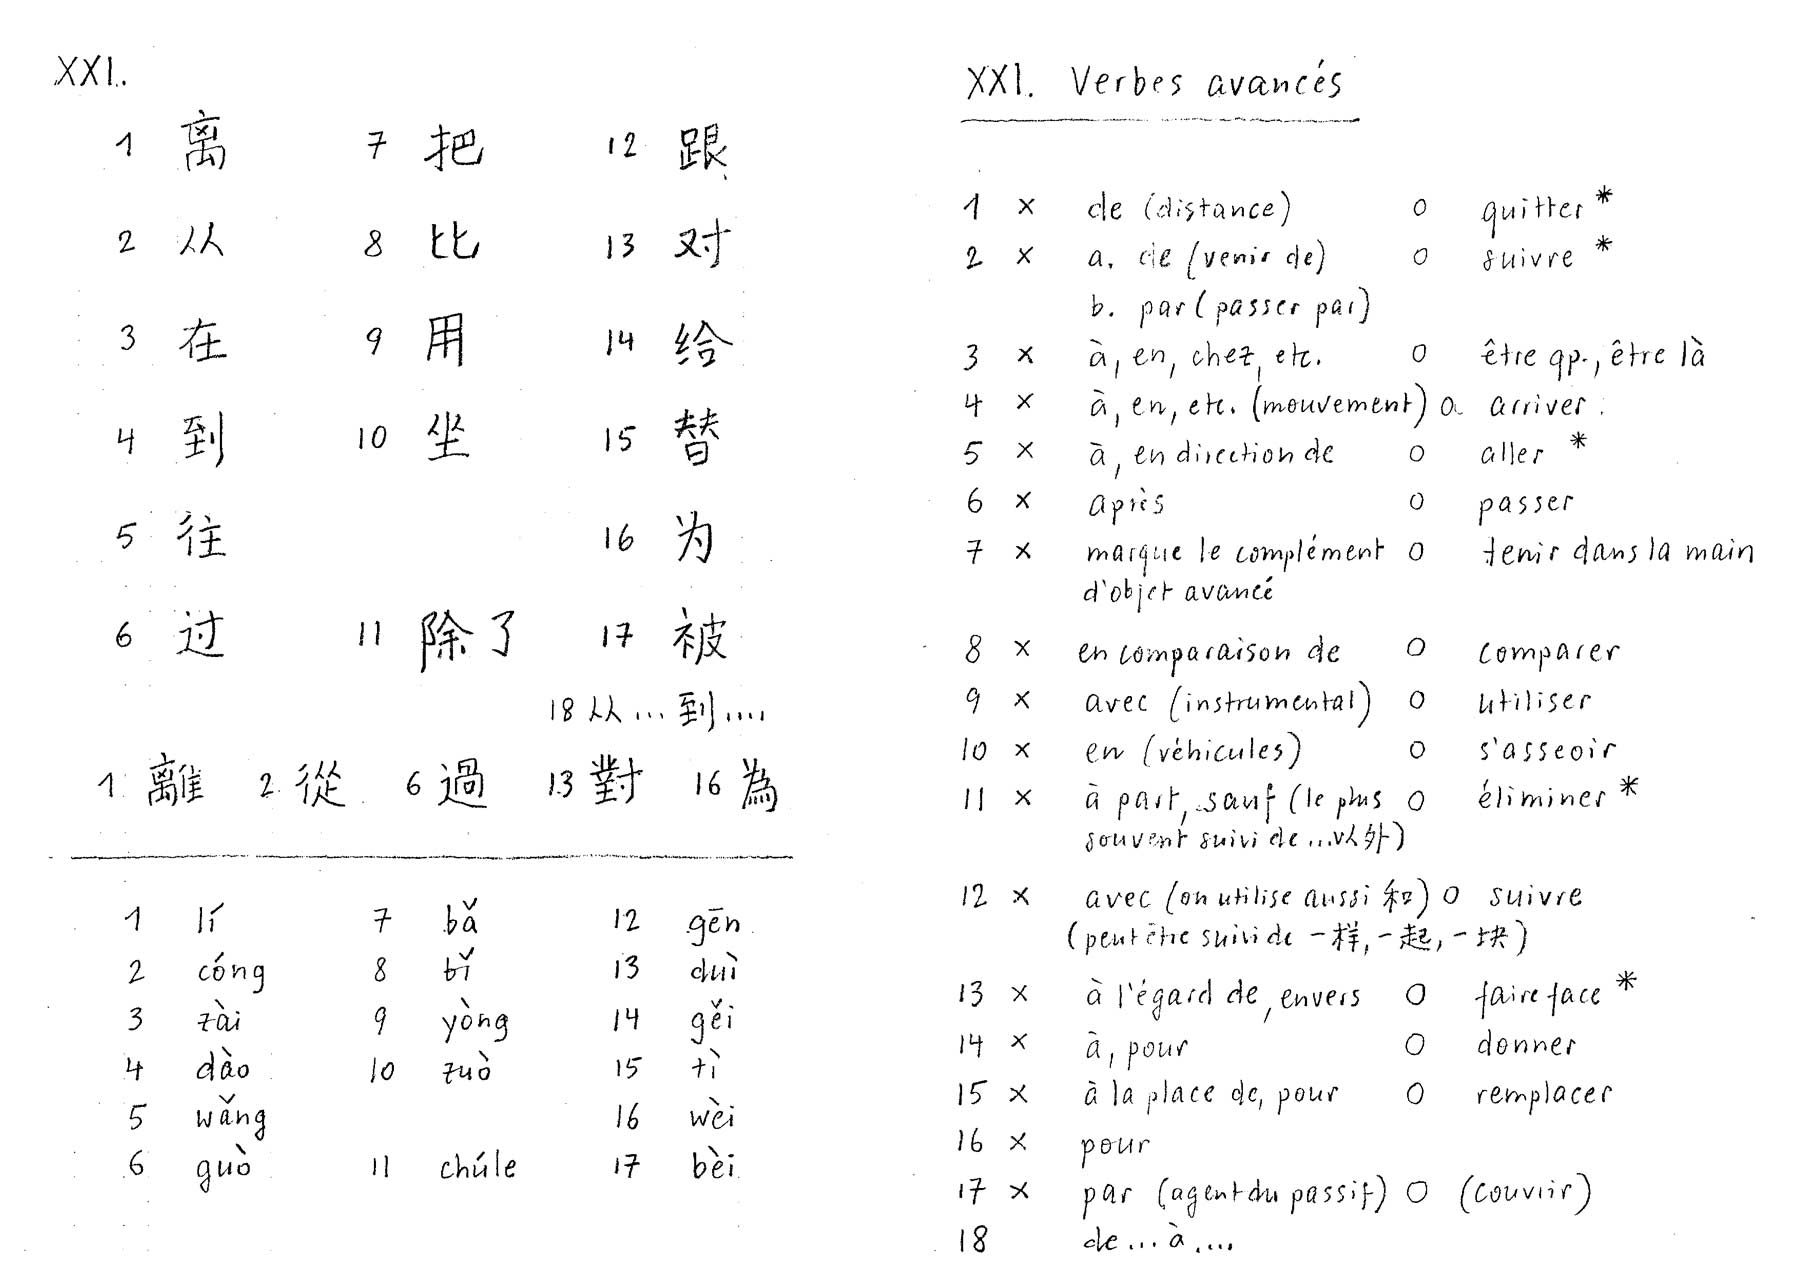 XXI.
1 离 7 把 12 跟
2 从 8 比 13 对
3 在 9 用 14 给
4 到 10 坐 15 替
5 往 16 为
6 过 11 除了 17 被
18 从...到....
1 離 2 從 6 過 13 對 16 為
1 lí 7 bǎ 12 gēn
2 cóng 8 bǐ 13 duì
3 zài 9 yòng 14 gěi
4 dào 10 zuò 15 tì
5 wǎng 16 wèi
6 guò 11 chúle 17 bèi
XXI. Verbes avancés
1 × de (distance) O quitter *
2 × a. de (venir de) O suivre *
b. par (passer par)
3 × à, en, chez, etc. O être qp., être là
4 × à, en, etc. (mouvement) O arriver
5 × à, en direction de O aller *
6 × après O passer
7 × marque le complément O tenir dans la main
d'objet avancé
8 × en comparaison de O comparer
9 × avec (instrumental) O utiliser
10 × en (véhicules) O s'asseoir
11 × à part, sauf (le plus O éliminer *
souvent suivi de ...以外)
12 × avec (on utilise aussi 和) O suivre
(peut être suivi de 一样, 一起, 一块)
13 × à l'égard de, envers O faire face *
14 × à, pour O donner
15 × à la place de, pour O remplacer
16 × pour
17 × par (agent du passif) O (couvrir)
18 de ... à ....